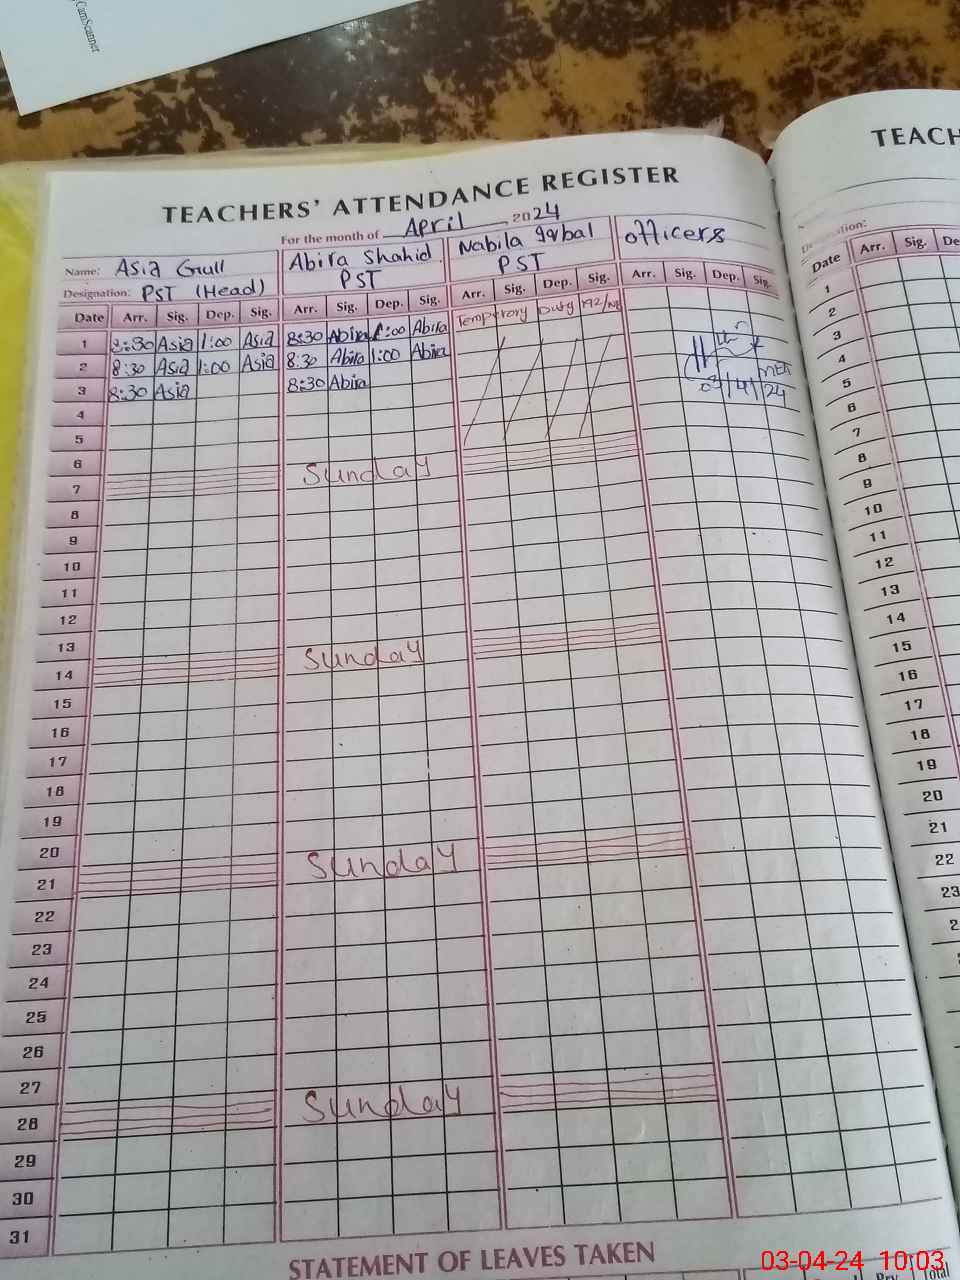 CamScanner
TEACHERS' ATTENDANCE REGISTER
For the month of April 2024
Name: Asia Gull Abira Shahid Nabila Iqbal officers
Designation: PST (Head) PST PST
Date Arr. Sig. Dep. Sig. Arr. Sig. Dep. Sig. Arr. Sig. Dep. Sig. Arr. Sig. Dep. Sig.
Temporory Duty
1 8:30 Asia 1:00 Asia 8:30 Abira 1:00 Abira
2 8:30 Asia 1:00 Asia 8:30 Abira 1:00 Abira
3 8:30 Asia 8:30 Abira
03/4/24
4
5
6
7 Sunday
8
9
10
11
12
13
14 Sunday
15
16
17
18
19
20
21 Sunday
22
23
24
25
26
27
28 Sunday
29
30
31
STATEMENT OF LEAVES TAKEN
TEACH
Designation:
Date Arr. Sig. De
1
2
3
4
5
6
7
8
9
10
11
12
13
14
15
16
17
18
19
20
21
22
23
2
Total
03-04-24 10:03